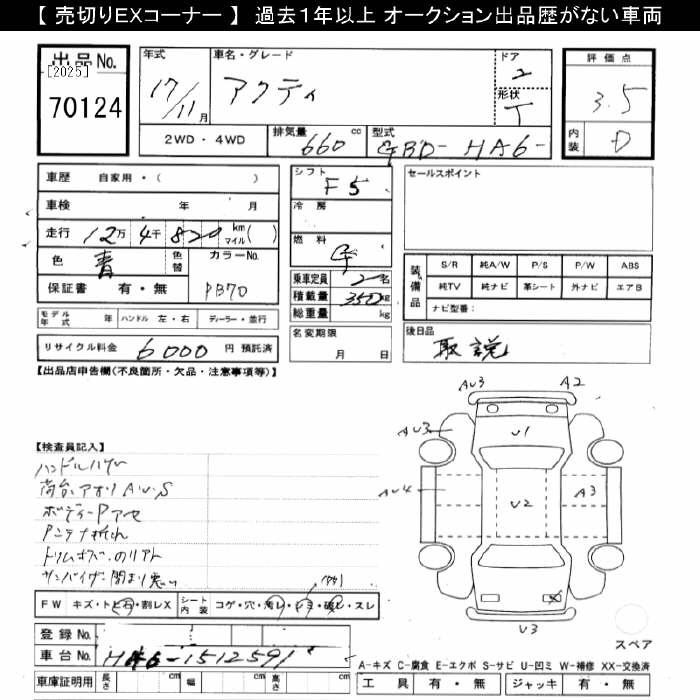 【 売切りEXコーナー 】 過去1年以上 オークション出品歴がない車両
出品No. [2025] 70124
年式 17/11月
車名・グレード アクティ
ドア 2
形状 T
評価点 3.5
内装 D
2WD・4WD 排気量 660 cc 型式 GBD-HA6-
車歴 自家用・( )
車検 年 月
走行 12万 4千 820 km マイル( )
色 青 色替 カラーNo. PB70
保証書 有・無
モデル年式 年 ハンドル 左・右 ディーラー・並行
リサイクル料金 6000 円 預託済
シフト F5
冷房
燃料
乗車定員 2名
積載量 350kg
総重量 kg
名変期限 月 日
セールスポイント
装備品 S/R 純A/W P/S P/W ABS
純TV 純ナビ 革シート 外ナビ エアB
ナビ型番:
後日品 取説
【出品店申告欄(不良箇所・欠品・注意事項等)】
【検査員記入】
ハンドルハゲ
荷台アオリA.U.S
ボディーPアセ
Pンテナ折れ
サンバイザー閉まり悪い
AU3 A2
AU3 U1
AU4 U2 A3
U3
スペア
FW キズ・トビ石・割レX シート内装 コゲ・穴・汚レ・シミ・破レ・スレ
登録No.
車台No. HA6-1512591
車庫証明用 長さ cm 幅 cm 高さ cm
A-キズ C-腐食 E-エクボ S-サビ U-凹ミ W-補修 XX-交換済
工具 有・無 ジャッキ 有・無